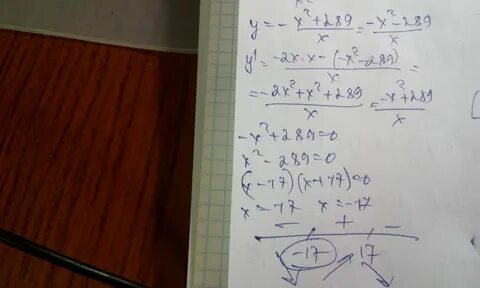 y = - x²+289/x = -x²-289/x
y' = -2x·x-(-x²-289)/x =
= -2x²+x²+289/x = -x²+289/x
-x²+289=0
x²-289=0
(x-17)(x+17)=0
x=17 x=-17
- + -
-17 17